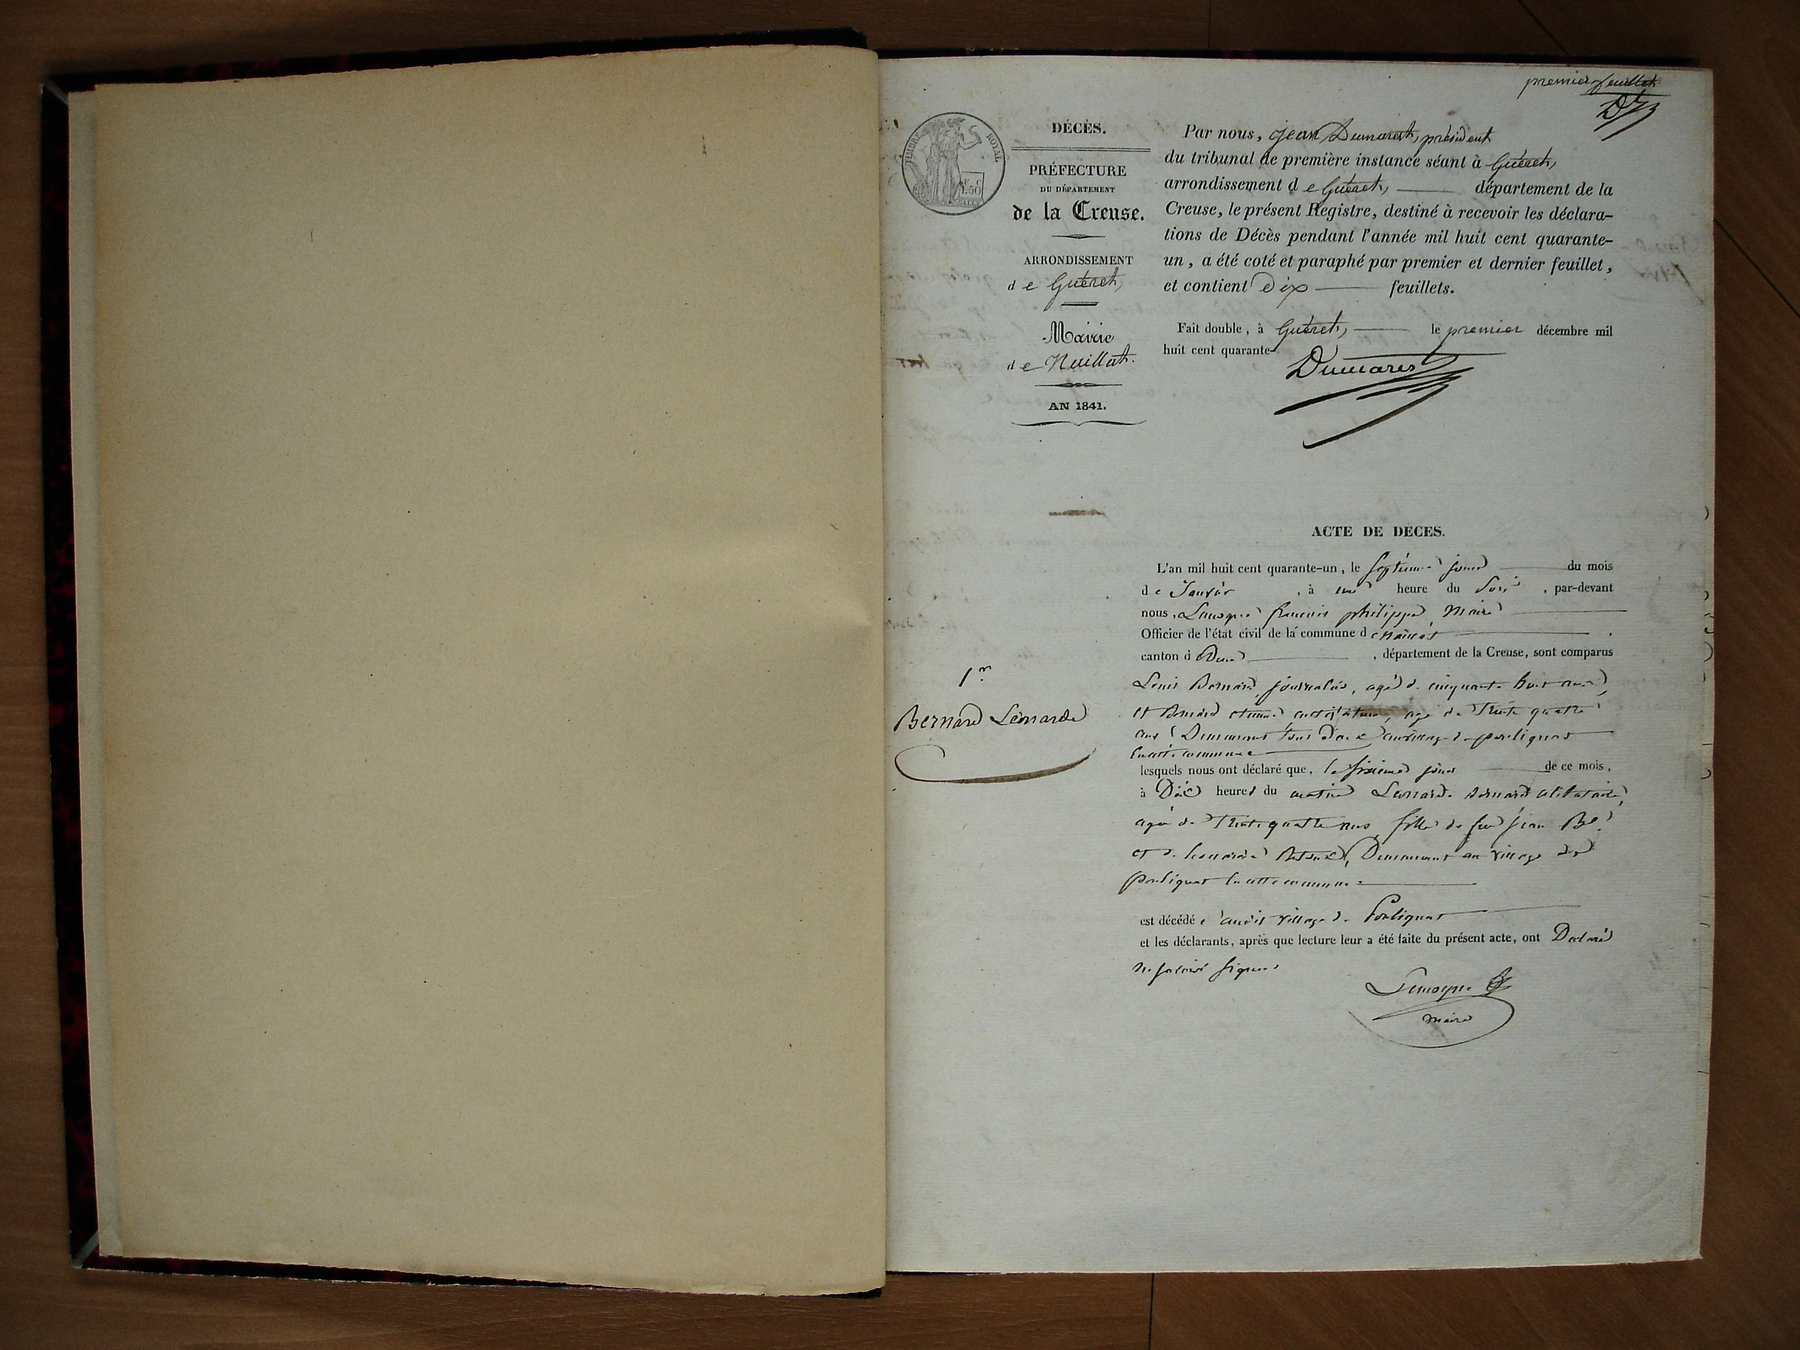 premier feuillet
TIMBRE ROYAL
1.50
DÉCÈS.
PRÉFECTURE
DU DÉPARTEMENT
de la Creuse.
ARRONDISSEMENT
de Guéret,
Mairie
de Naillat.
AN 1841.
Par nous, Jean Dumarest, président
du tribunal de première instance séant à Guéret,
arrondissement de Guéret, département de la
Creuse, le présent Registre, destiné à recevoir les déclara-
tions de Décès pendant l'année mil huit cent quarante-
un, a été coté et paraphé par premier et dernier feuillet,
et contient dix feuillets.
Fait double, à Guéret, le premier décembre mil
huit cent quarante
Dumarest
ACTE DE DECES.
L'an mil huit cent quarante-un, le septieme jour du mois
de Janvier, à une heure du soir, par-devant
nous, Lamoyne françois philippe, Maire
Officier de l'état civil de la commune de naillat
canton de Dun, département de la Creuse, sont comparus
1er
Bernard Léonarde
Louis Bernard, journalier, agé de cinquante huit ans,
et Bernard etienne cultivateur, agé de Trente quatre
ans Demeurant tous deux au village de poulignat
en cette commune
lesquels nous ont déclaré que, le sixieme jour de ce mois,
à Dix heures du matin Léonarde Bernard celibataire,
agée de Trente quatre ans, fille de feu jean Bd.
et de Léonarde, Demeurant au village de
poulignat en cette commune
est décédée audit village de Poulignat
et les déclarants, après que lecture leur a été faite du présent acte, ont Declaré
ne savoir signer
Lamoyne
maire